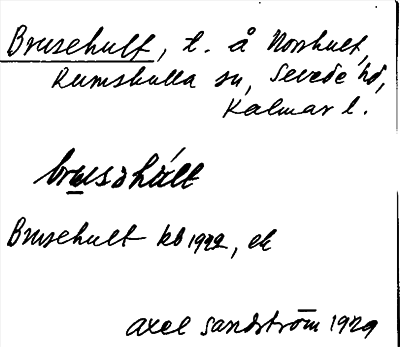 Brusehult, t. å Norrhult,
Rumskulla sn, Sevede hd,
Kalmar l.
brusəhùlt
Brusehult kb 1922, ek
Axel Sandström 1929